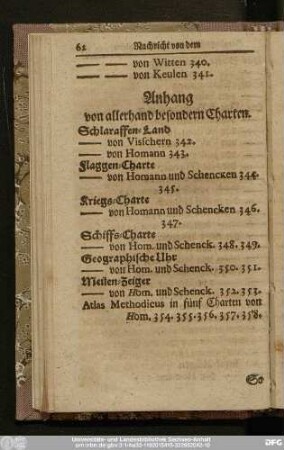 62 Nachricht von dem
— — von Witten 340.
— — von Keulen 341.
Anhang
von allerhand besondern Charten.
Schlaraffen-Land
— von Visschern 342.
— von Homann 343.
Flaggen-Charte
— von Homann und Schencken 344.
345.
Kriegs-Charte
— von Homann und Schencken 346.
347.
Schiffs-Charte
— von Hom. und Schenck. 348. 349.
Geographische Uhr
— von Hom. und Schenck. 350. 351.
Meilen-Zeiger
— von Hom. und Schenck. 352. 353.
Atlas Methodicus in fünf Charten von
Hom. 354. 355. 356. 357. 358.
So
Universitäts- und Landesbibliothek Sachsen-Anhalt
DFG